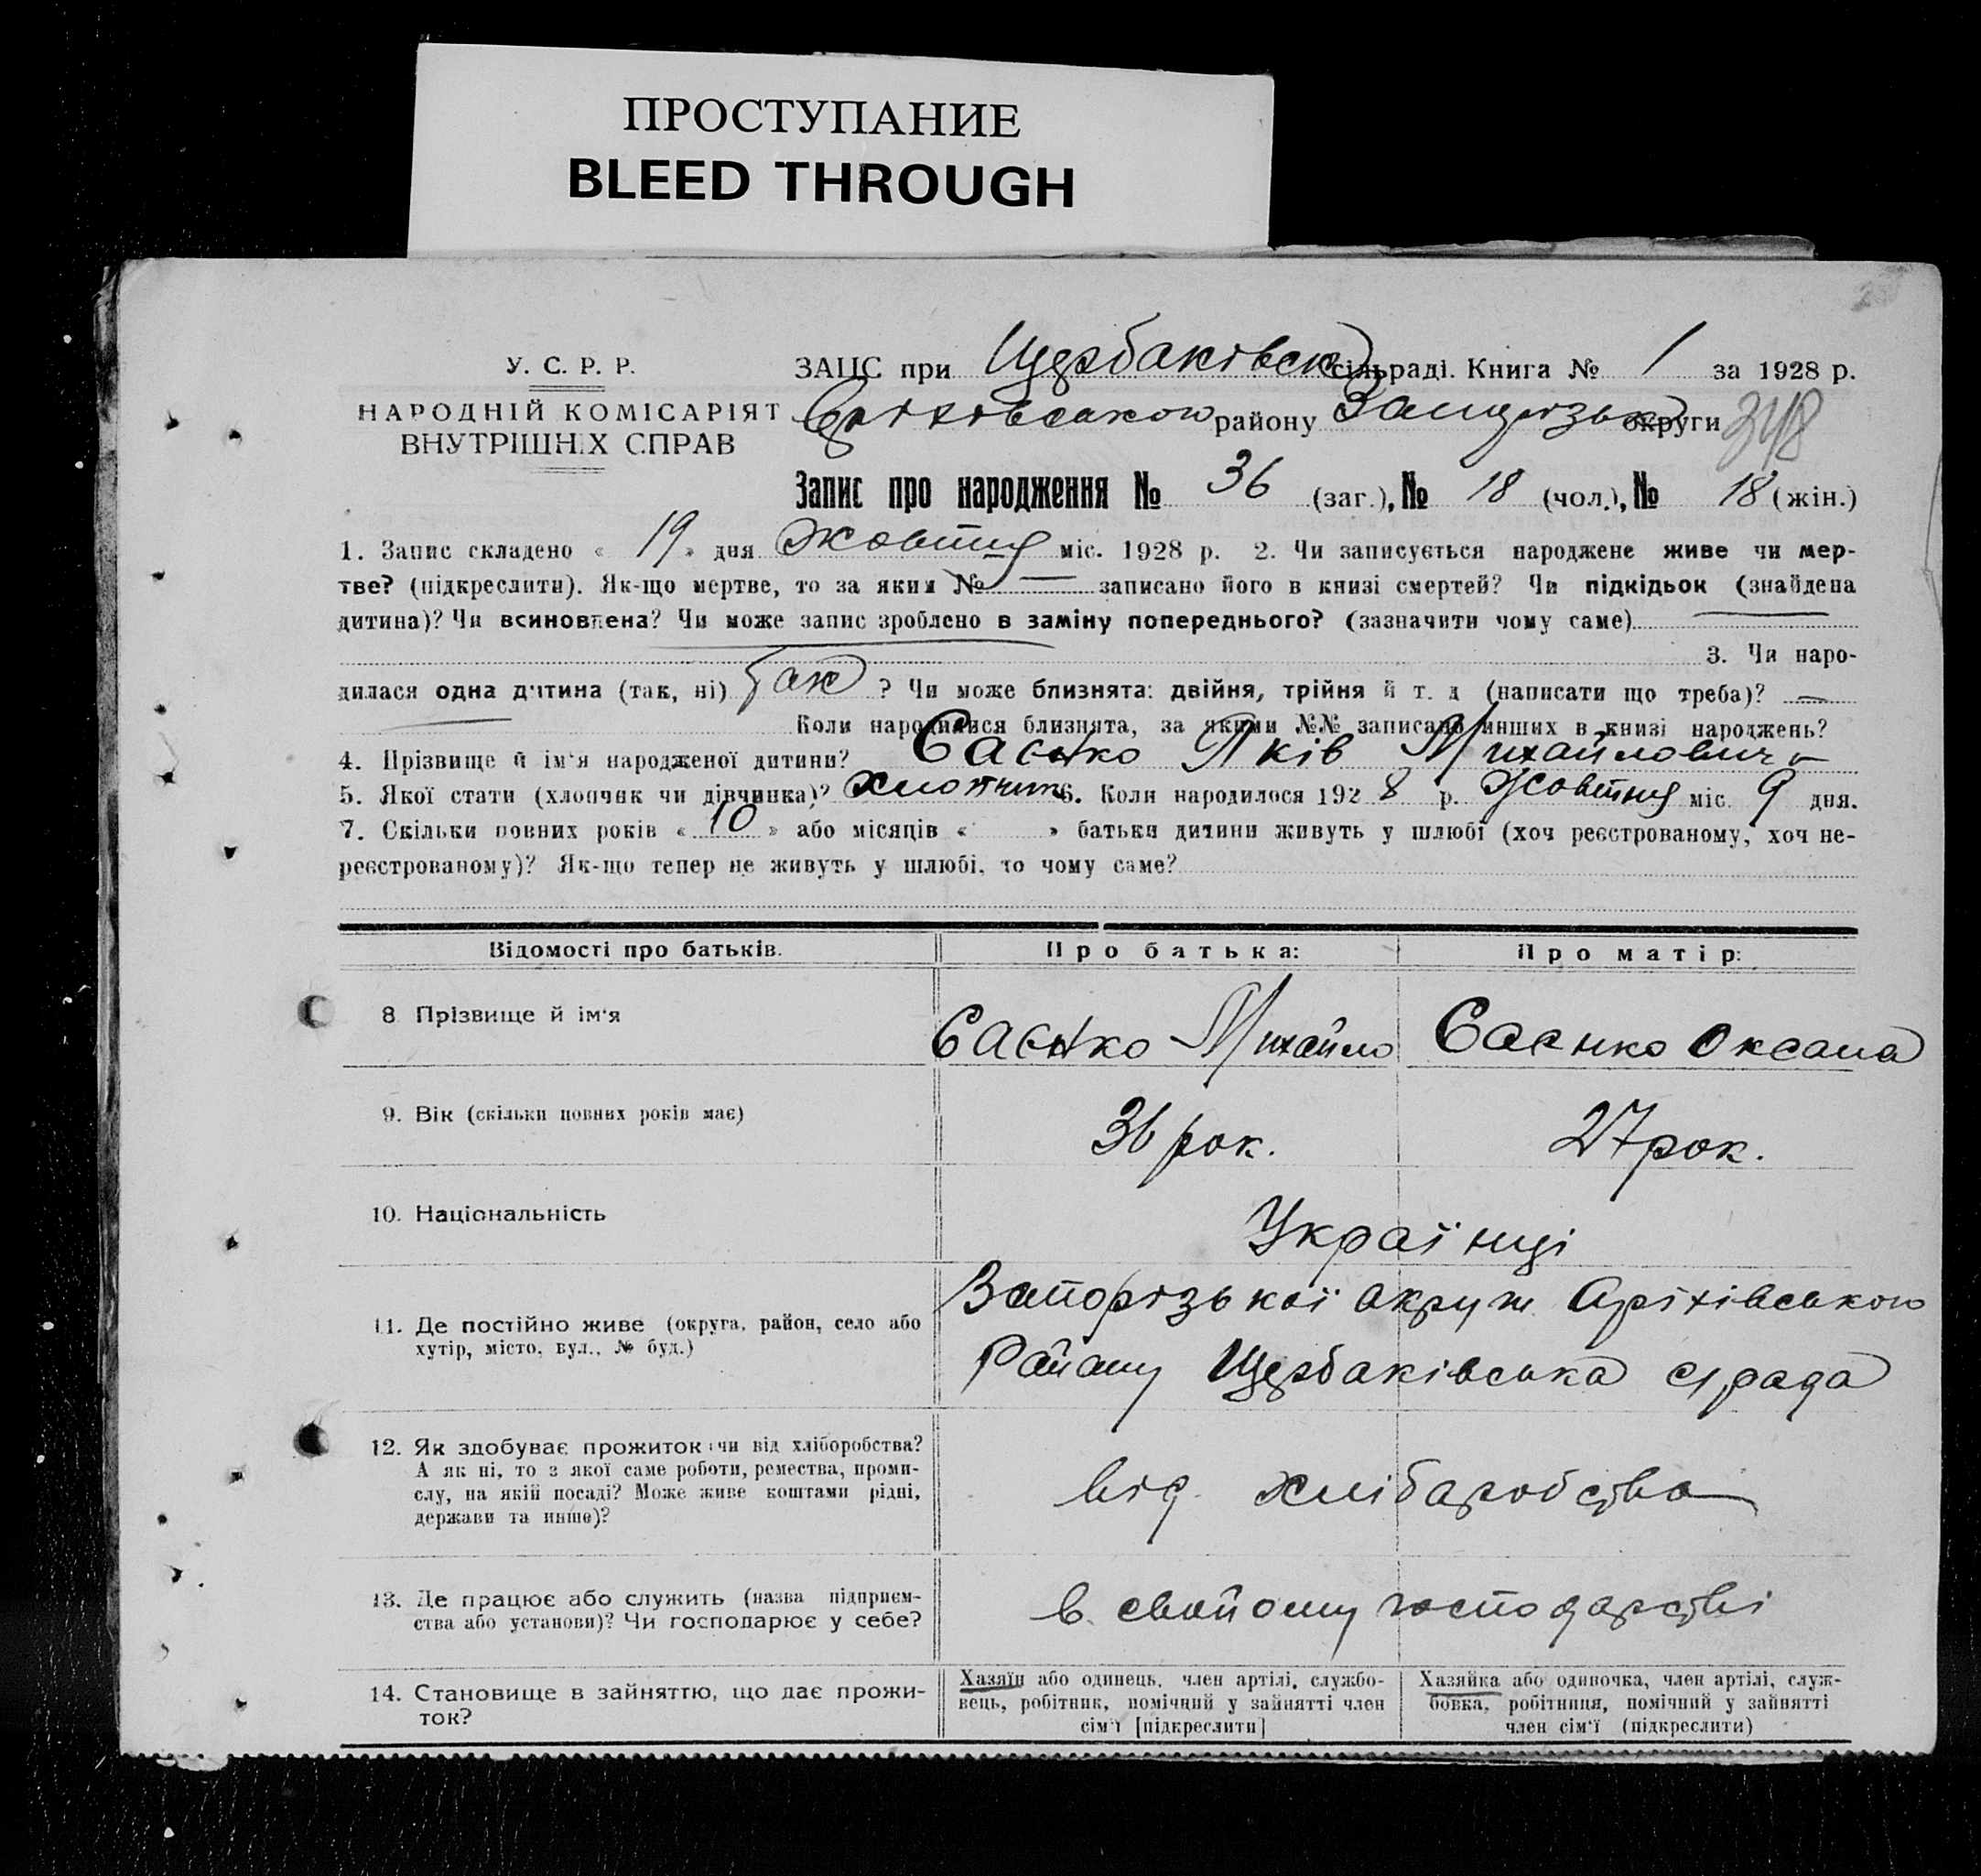 ПРОСТУПАНИЕ
BLEED THROUGH
У. С. Р. Р.
НАРОДНІЙ КОМІСАРІЯТ
ВНУТРІШНІХ СПРАВ
ЗАЦС при Щербаківськ сільраді. Книга № 1 за 1928 р.
району округи 348
Запис про народження № 36 (заг.), № 18 (чол.), № 18 (жін.)
1. Запис складено « 19 » дня Жовтня міс. 1928 р. 2. Чи записується народжене живе чи мер-
тве? (підкреслити). Як-що мертве, то за яким № — записано його в книзі смертей? Чи підкідьок (знайдена
дитина)? Чи всиновлена? Чи може запис зроблено в заміну попереднього? (зазначити чому саме)
3. Чи наро-
дилася одна дитина (так, ні) так ? Чи може близнята: двійня, трійня й т. д (написати що треба)? —
Коли народилися близнята, за якими №№ записано инших в книзі народжень?
4. Прізвище й ім'я народженої дитини? Саєнко Яків Михайлович
5. Якої стати (хлопчик чи дівчинка)? хлопчик 6. Коли народилося 192 8 р. Жовтня міс. 9 дня.
7. Скільки повних років « 10 » або місяців « » батьки дитини живуть у шлюбі (хоч реєстрованому, хоч не-
реєстрованому)? Як-що тепер не живуть у шлюбі, то чому саме?
Відомості про батьків. Про батька: Про матір:
8 Прізвище й ім'я Саєнко Михайло Саєнко Оксана
9. Вік (скільки повних років має) 36 рок. 27 рок.
10. Національність Українці
11. Де постійно живе (округа, район, село або
хутір, місто, вул., № буд.)
Запорізької округи Оріхівського
Району Щербаківська с/рада
12. Як здобуває прожиток: чи від хліборобства?
А як ні, то з якої саме роботи, ремества, проми-
слу, на якій посаді? Може живе коштами рідні,
держави та инше)?
від хлібаробства
13. Де працює або служить (назва підприєм-
ства або установи)? Чи господарює у себе?
в свойому господарстві
14. Становище в зайняттю, що дає прожи-
ток?
Хазяїн або одинець, член артілі, службо-
вець, робітник, помічний у зайнятті член
сім'ї [підкреслити]
Хазяйка або одиночка, член артілі, служ-
бовка, робітниця, помічний у зайнятті
член сім'ї (підкреслити)